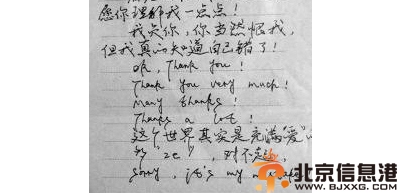 愿你理解我一点点！
我知道你，你当然恨我，
但我真的知道自己错了！
Thank you!
Thank you very much!
Many thanks!
Thanks a lot!
这个世界其实是充满"爱"
的 对不起，
sorry, it's my
北京信息港
www.bjxxg.com